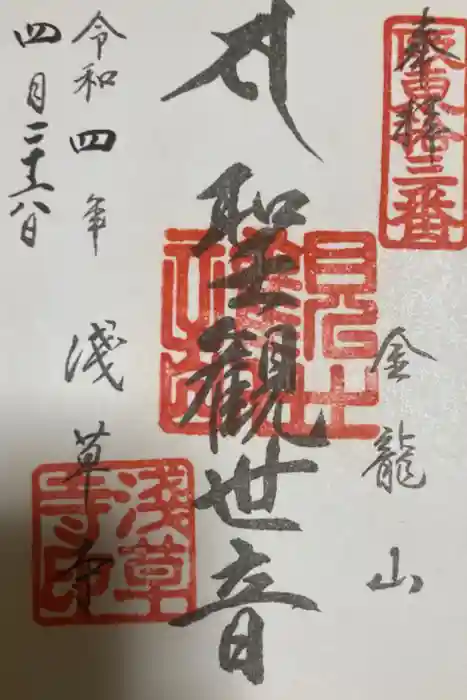 奉拝
坂東拾三番
金龍山
聖観世音
浅草寺
令和四年
四月二十八日
浅草寺印